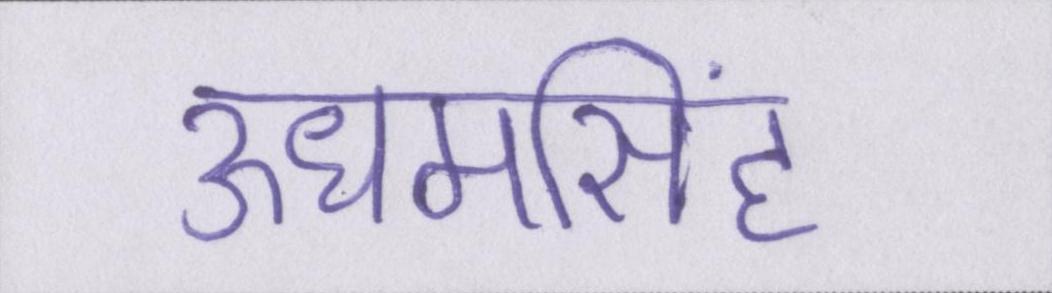 ऊधमसिंह